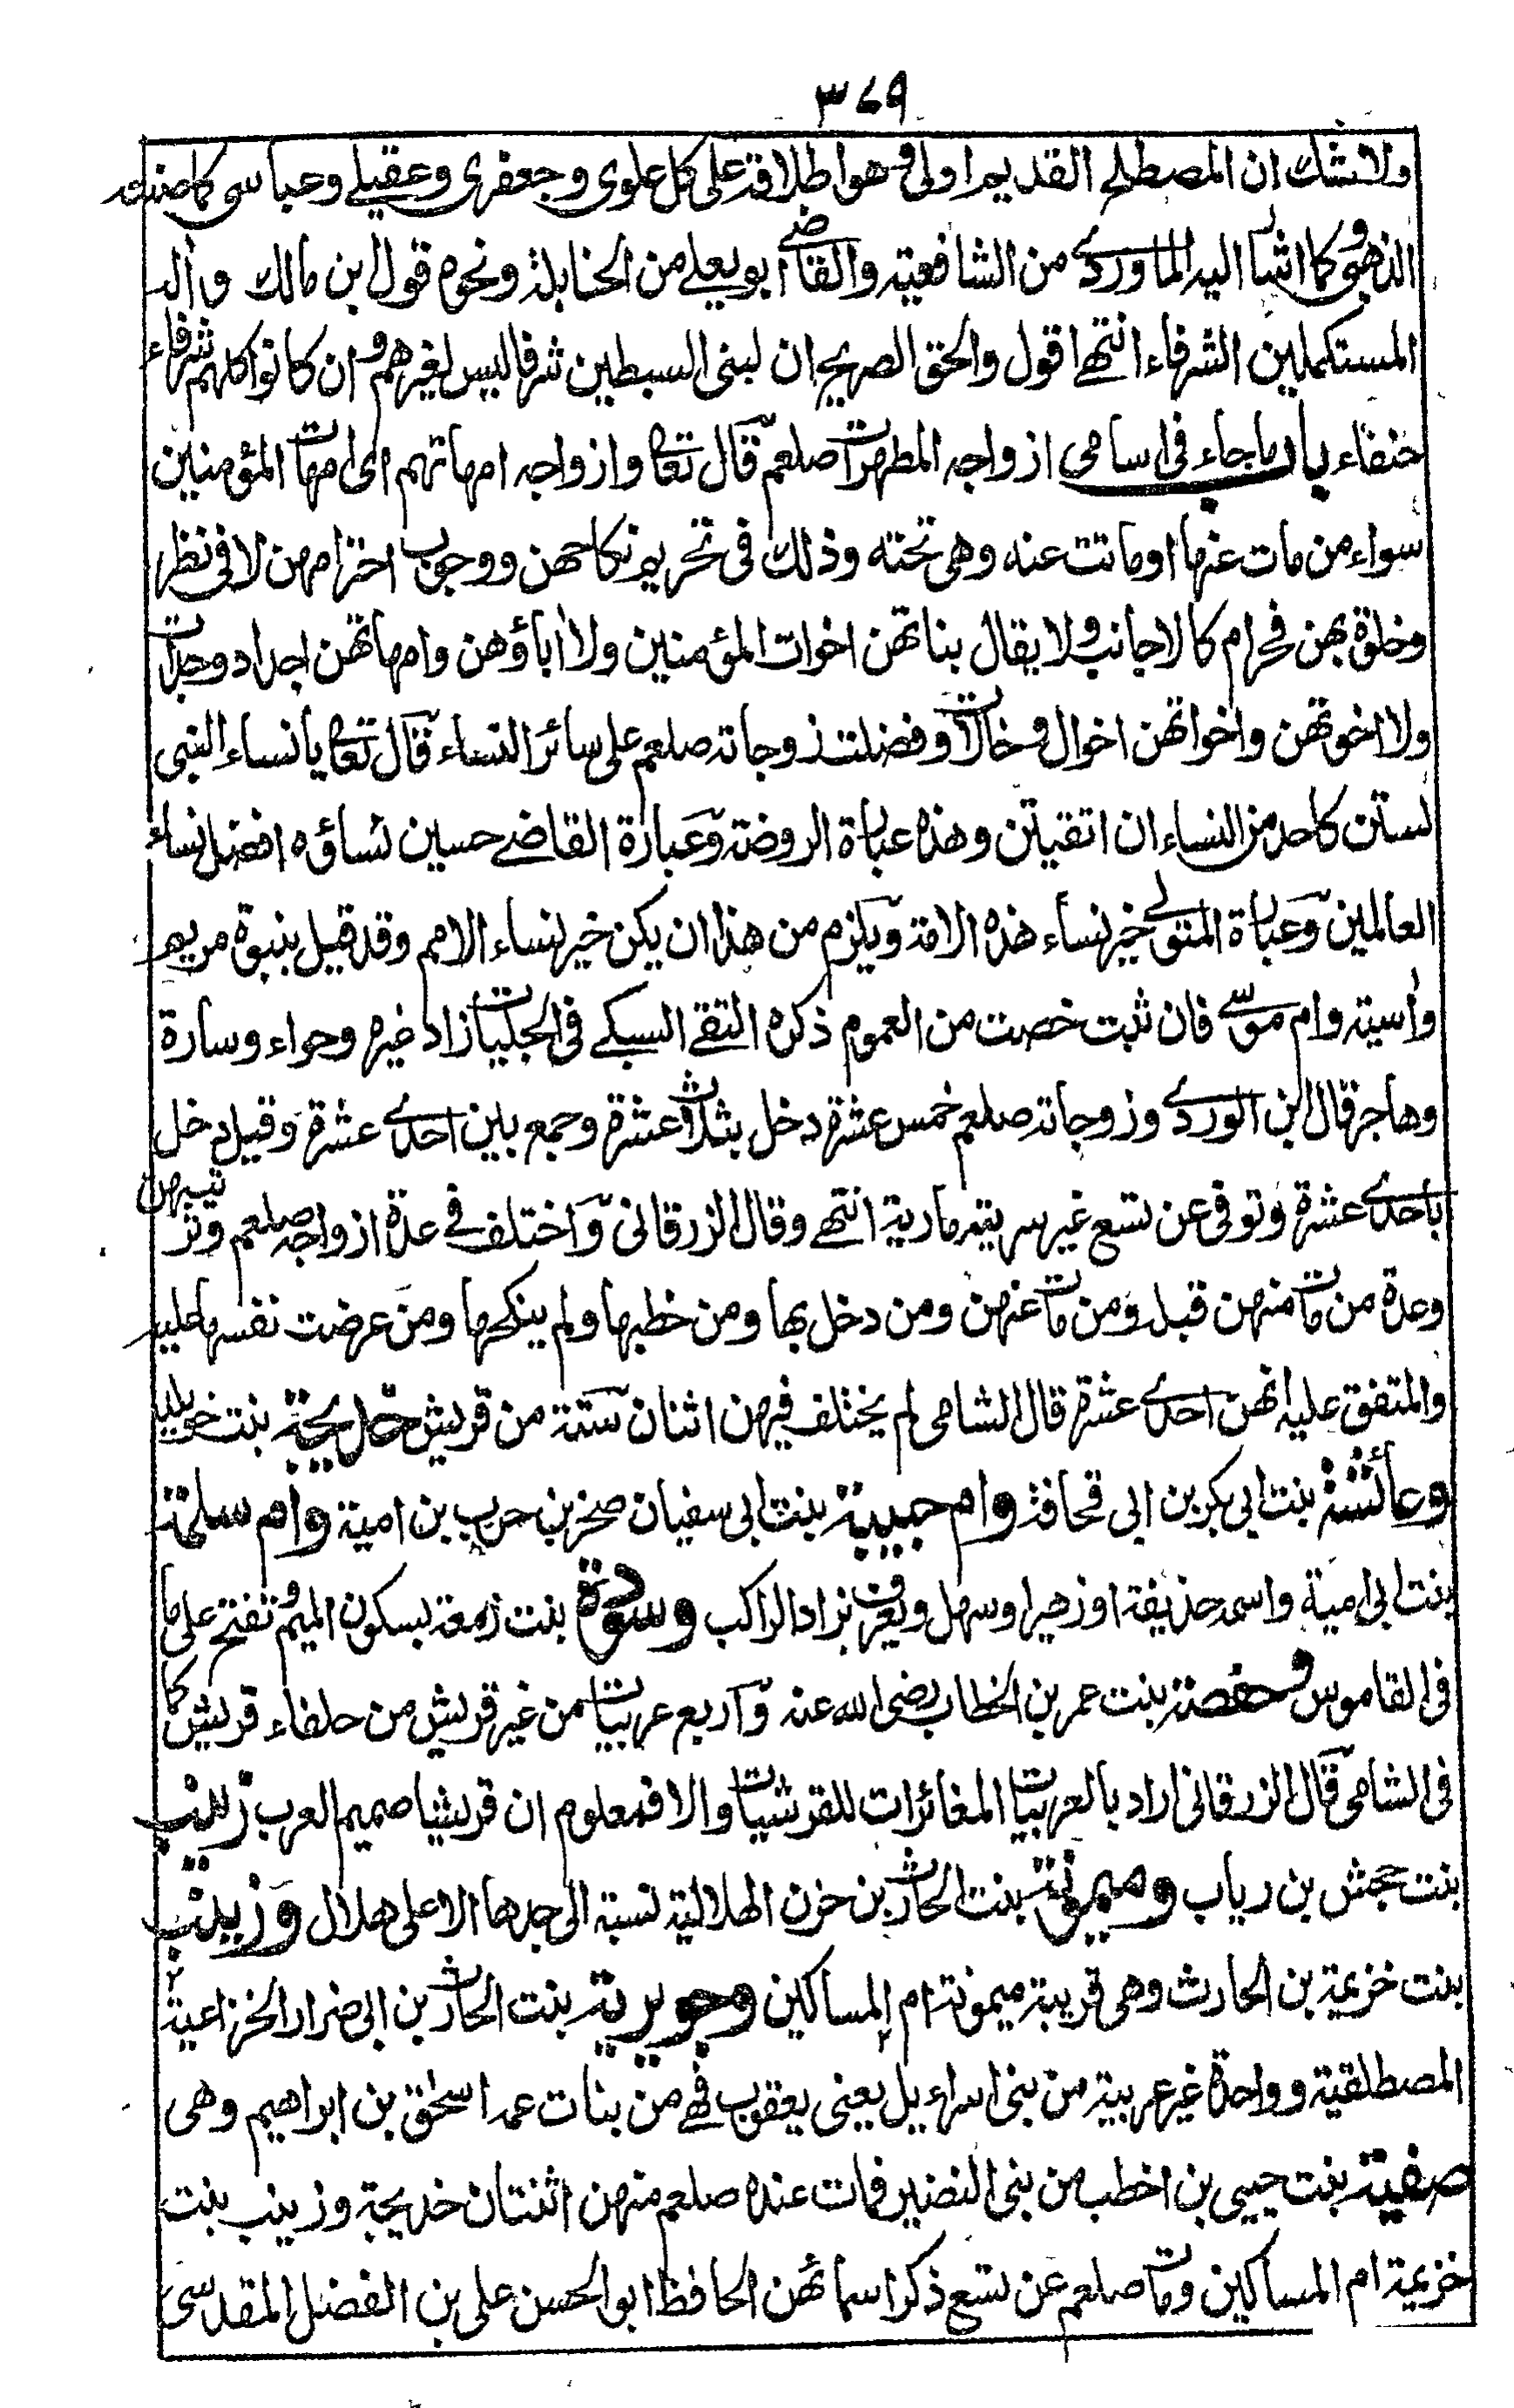 ٣٧٩
ولا شك ان المصطلح القديم اولى وهو اطلاقه على كل علوى وجعفرى وعقيلے وعباسى كما صنعه
الذهبى وكما اشار اليه الماوردے من الشافعية والقاضے ابو يعلے من الحنابلة ونحوه قول ابن مالك وآله
المستكملين الشرفاء انتهے اقول والحق الصريح ان لبنى السبطين شرفا ليس لغيرهم وان كانوا كلهم شرفاء
حنفاء باب ما جاء فى اسامى ازواجه المطهرات صلعم قال تعا وازواجه امهاتهم اى امهات المؤمنين
سواء من مات عنها او ماتت عنه وهى تحته وذلك فى تحريم نكاحهن ووجوب احترامهن لا فى نظر
وخلوة بهن فحرام كالاجانب ولا يقال بناتهن اخوات المؤمنين ولا اباؤهن وامهاتهن اجداد وجدات
ولا اخوتهن واخواتهن اخوال وخالات وفضلت زوجاته صلعم على سائر النساء قال تعا يا نساء النبى
لستن كاحد من النساء ان اتقيتن وهذه عبارة الروضة وعبارة القاضے حسين نساؤه افضل نساء
العالمين وعبارة المتولے خير نساء هذه الامة ويلزم من هذا ان يكن خير نساء الامم وقد قيل بنبوة مريم
واسية وام موسے فان ثبت خصت من العموم ذكره التقے السبكے فى الحلبيات زاد غيره وحواء وسارة
وهاجر قال ابن الوردے وزوجاته صلعم خمس عشرة دخل بثلاث عشرة وجمع بين احدے عشرة وقيل دخل
باحدے عشرة وتوفى عن تسع غير سريته مارية انتهے وقال الزرقانى واختلف فے عدة ازواجه صلعم وترتيبهن
وعدة من مات منهن قبله ومن مات عنهن ومن دخل بها ومن خطبها ولم ينكحها ومن عرضت نفسها عليه
والمتفق عليه انهن احدے عشرة قال الشامى لم يختلف فيهن اثنان ستة من قريش خديجة بنت خويلد
وعائشة بنت ابى بكر بن ابى قحافة وام حبيبة بنت ابى سفيان صخر بن حرب بن امية وام سلمة
بنت ابى امية واسمه حذيفة او زهير او سهل ويعرف بزاد الراكب وسودة بنت زمعة بسكون الميم وتفتح على ما
فى القاموس وحفصة بنت عمر بن الخطاب رضى الله عنه واربع عربيات من غير قريش من حلفاء قريش كما
فى الشامى قال الزرقانى اراد بالعربيات المغائرات للقرشيات والا فمعلوم ان قريشا صميم العرب زينب
بنت جحش بن رياب وميمونة بنت الحارث بن حزن الهلالية نسبة الى جدها الاعلى هلال وزينب
بنت خزيمة بن الحارث وهى قريبة ميمونة ام المساكين وجويرية بنت الحارث بن ابى ضرار الخزاعية
المصطلقية وواحدة غير عربية من بنى اسراءيل يعنى يعقوب فهے من بنات عمه اسحق بن ابراهيم وهى
صفية بنت حيى بن اخطب من بنى النضير فمات عنده صلعم منهن اثنتان خديجة وزينب بنت
خزيمة ام المساكين ومات صلعم عن تسع ذكر اسمائهن الحافظ ابو الحسن على بن الفضل المقدسى